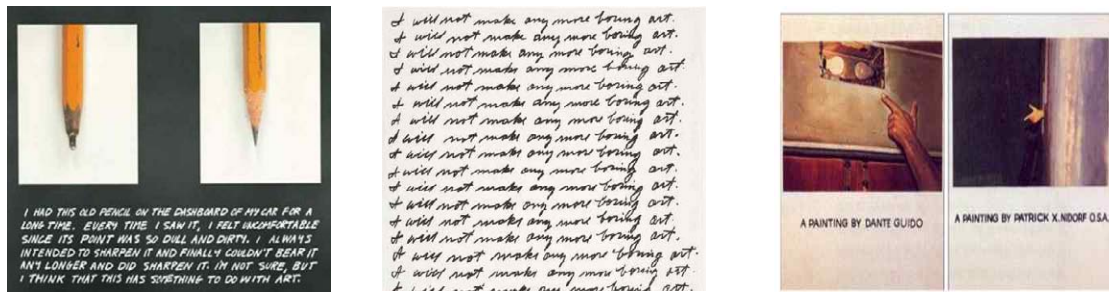 I HAD THIS OLD PENCIL ON THE DASHBOARD OF MY CAR FOR A
LONG TIME. EVERY TIME I SAW IT, I FELT UNCOMFORTABLE
SINCE ITS POINT WAS SO DULL AND DIRTY. I ALWAYS
INTENDED TO SHARPEN IT AND FINALLY COULDN'T BEAR IT
ANY LONGER AND DID SHARPEN IT. I'M NOT SURE, BUT
I THINK THAT THIS HAS SOMETHING TO DO WITH ART.
I will not make any more boring art.
I will not make any more boring art.
I will not make any more boring art.
I will not make any more boring art.
I will not make any more boring art.
I will not make any more boring art.
I will not make any more boring art.
I will not make any more boring art.
I will not make any more boring art.
I will not make any more boring art.
I will not make any more boring art.
I will not make any more boring art.
I will not make any more boring art.
I will not make any more boring art.
I will not make any more boring art.
I will not make any more boring art.
I will not make any more boring art.
A PAINTING BY DANTE GUIDO
A PAINTING BY PATRICK X. NIDORF O.S.A.